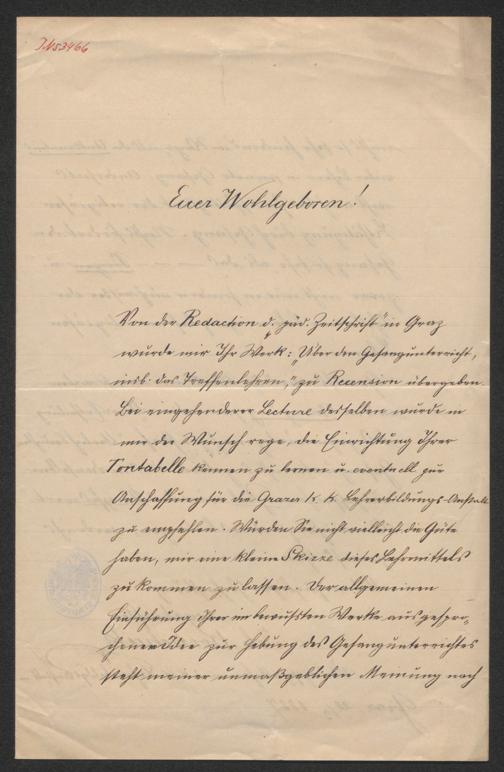 INs3466
Euer Wohlgeboren!
Von der Redaction d. "päd. Zeitschrift" in Graz
wurde mir Ihr Werk: "Über den Gesangunterricht,
insb. das Treffenlehren," zu Recension übergeben.
Bei eingehenderer Lecture desselben wurde in
mir der Wunsch rege, die Einrichtung Ihrer
Tontabelle kennen zu lernen u. eventuell zur
Anschaffung für die Grazer k. k. Lehrerbildungs-Anstalt
zu empfehlen. Würden Sie nicht vielleicht die Güte
haben, mir eine kleine Skizze dieses Lehrmittels
zukommen zu lassen. Der allgemeinen
Einführung Ihrer im bewußten Werke ausgespro-
chenen Idee zur Hebung des Gesangunterrichtes
steht meiner unmaßgeblichen Meinung nach